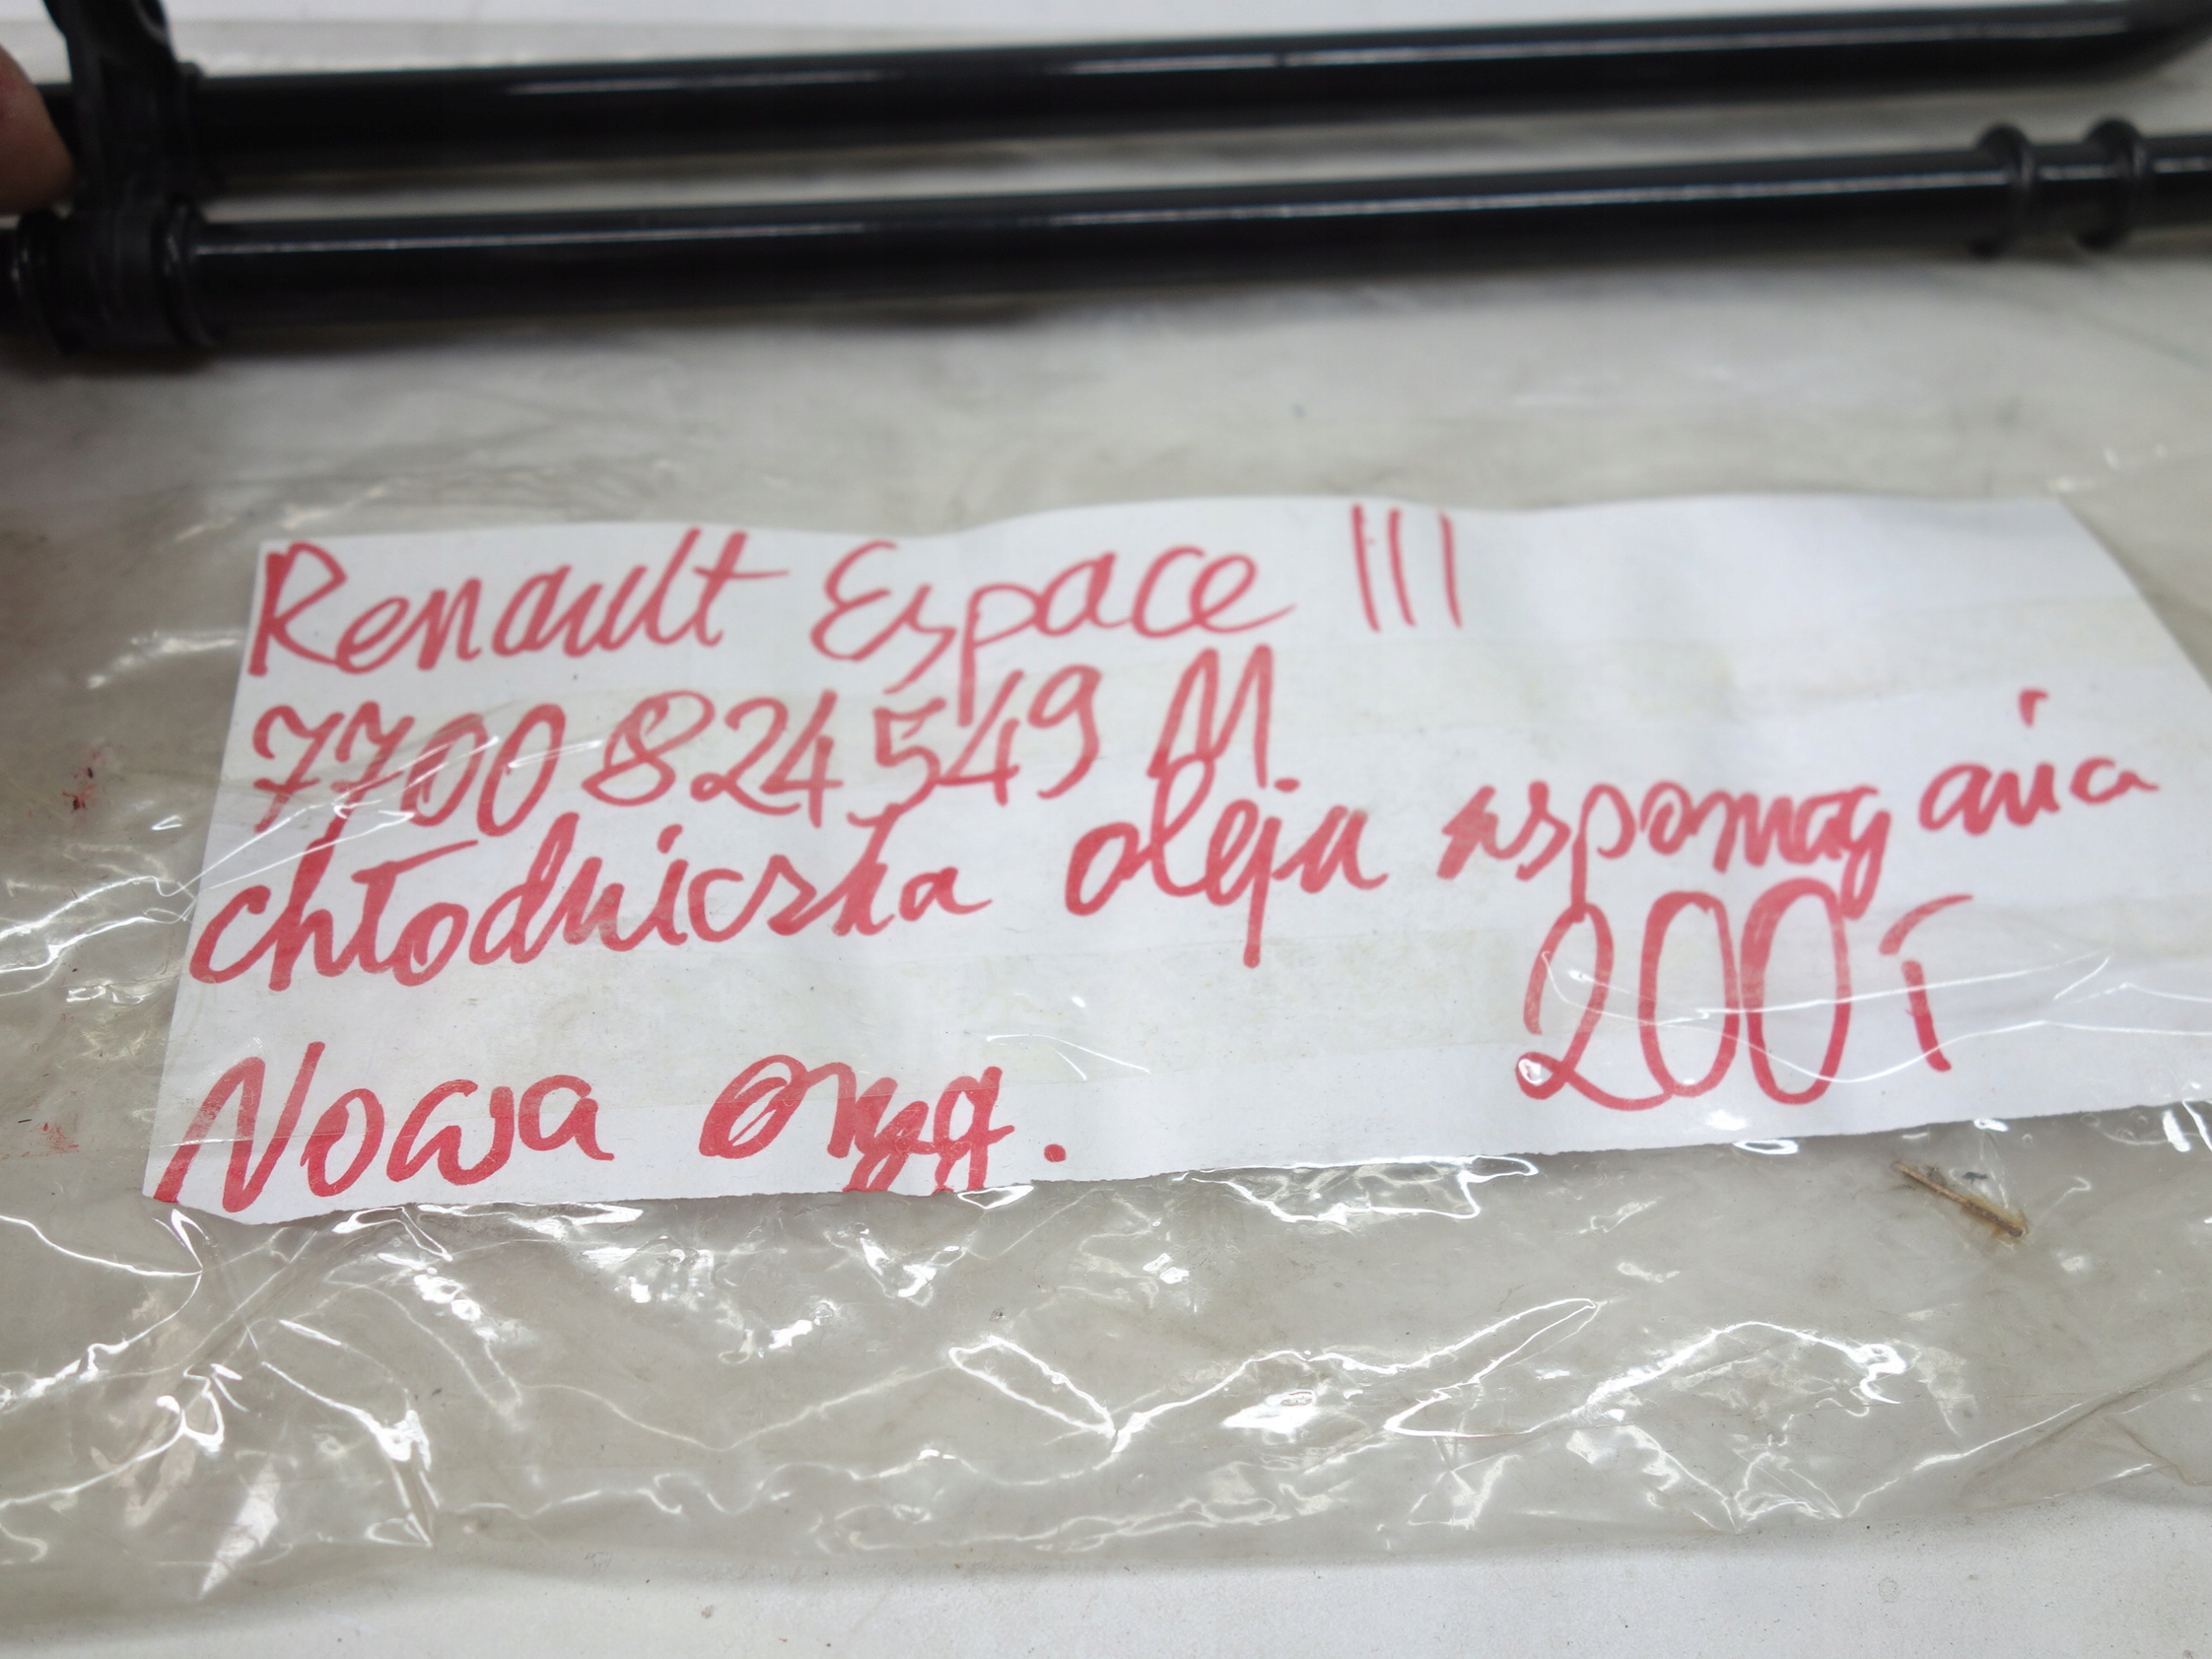 Renault Espace III
7700 824 549 M
chłodniczka oleju wspomagania
200
Nowa oryg.